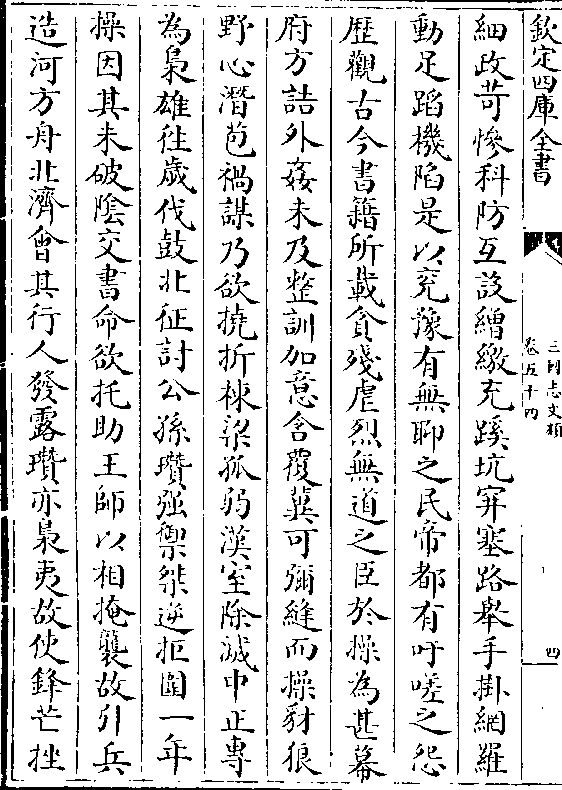 欽定四庫全書
三國志文類
卷五十四
四
細政苛慘科防互設繒繳充蹊坑穽塞路舉手掛網羅
動足蹈機陷是以兖豫有無聊之民帝都有吁嗟之怨
歴觀古今書籍所載貪殘虐烈無道之臣於操為甚幕
府方詰外姦未及整訓加意含覆兾可彌縫而操豺狼
野心潛苞禍謀乃欲撓折棟梁孤弱漢室除滅中正專
為梟雄往歲伐鼓北征討公孫瓚强禦桀逆拒圍一年
操因其未破陰交書命欲托助王師以相掩襲故引兵
造河方舟北濟會其行人發露瓚亦梟夷故使鋒芒挫